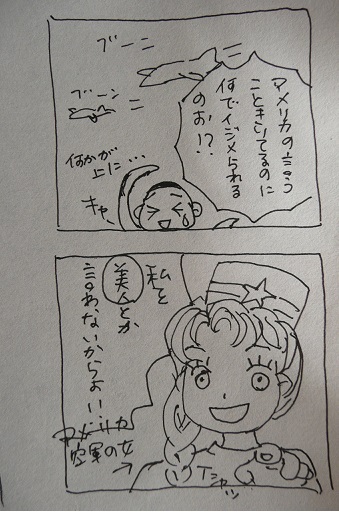 ブーン
ブーン
アメリカの言う
こときいてるのに
何でイジメられる
のお!?
何かが
上に・・・
キャ、
私を
美人とか
言わないからよい・・
アメリカ
空軍の女
Tシャツ